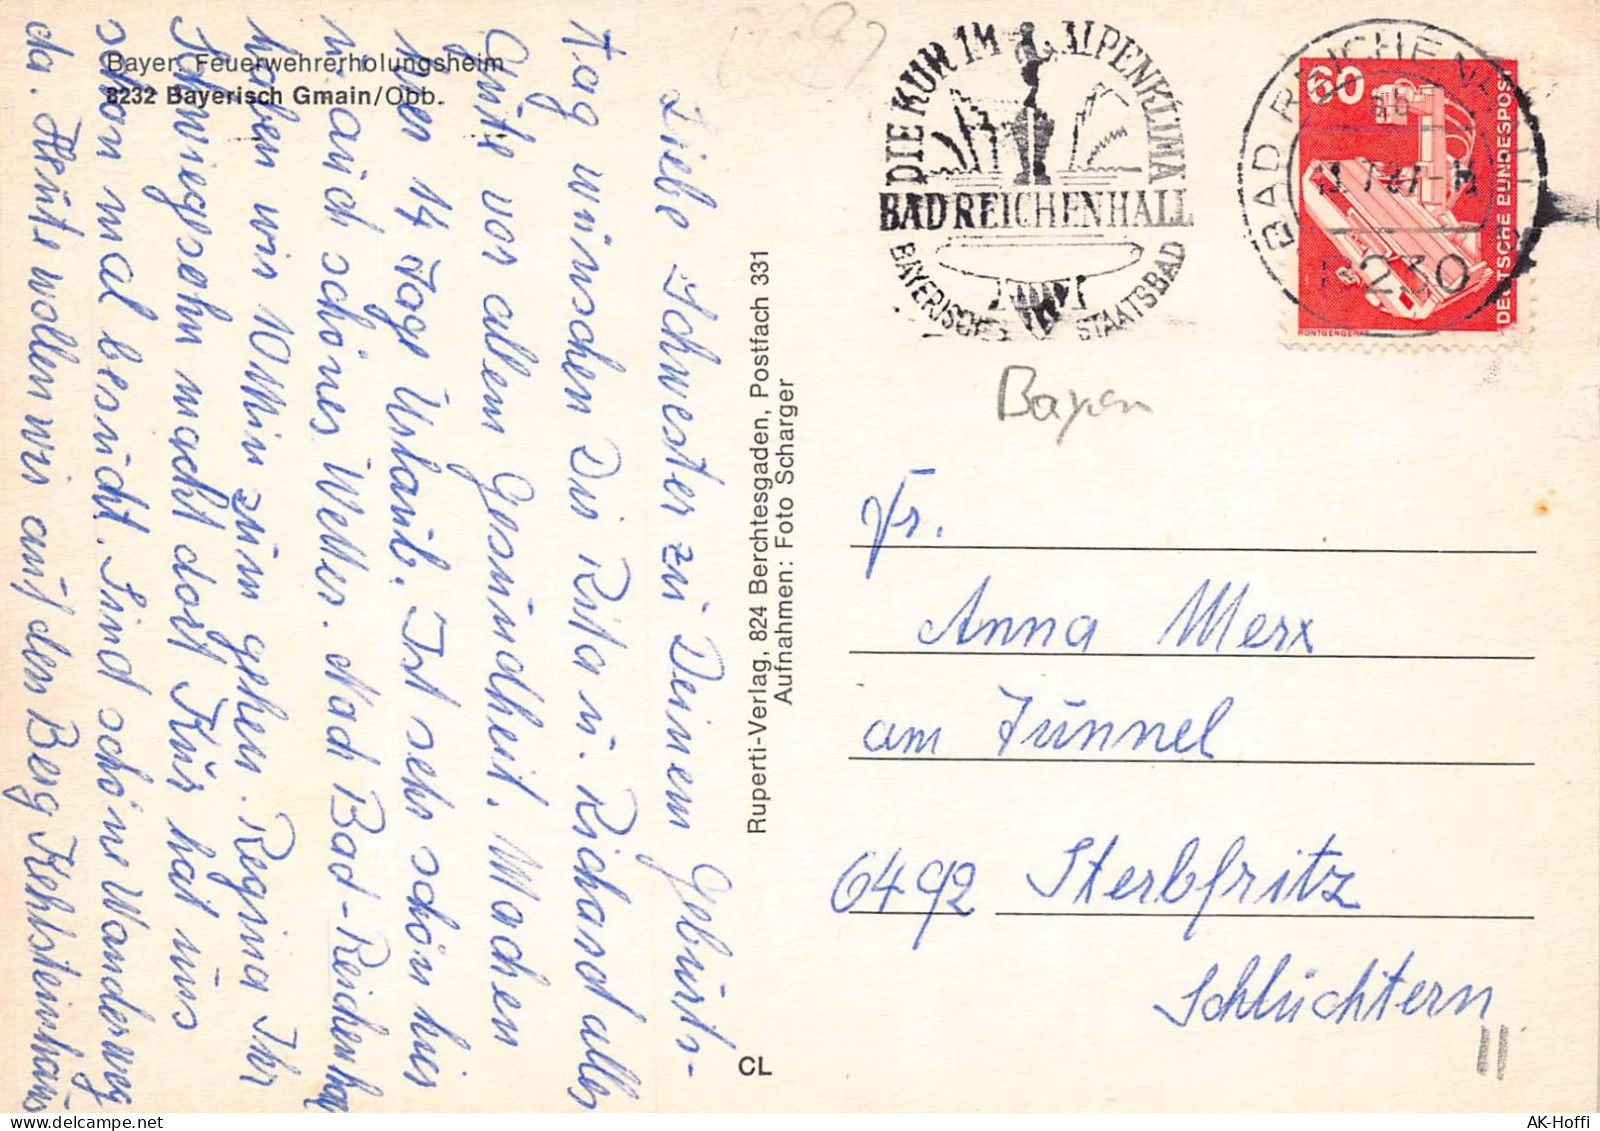 Bayer. Feuerwehrerholungsheim
8232 Bayerisch Gmain/Obb.
Liebe Schwester zu Deinem Geburts-
tag wünschen Dir Rita u. Richard alles
Gute vor allem Gesundheit. Machen
hier 14 Tage Urlaub. Ist sehr schön hier
u. auch schönes Wetter. Nach Bad-Reichenhall
haben wir 10 Min zum gehen. Regina Ihr
Schwiegersohn macht dort Kur hat uns
schon mal besucht. Sind schöne Wanderweg
da. Heute wollen wir auf den Berg Kehlsteinhaus
Ruperti-Verlag, 824 Berchtesgaden, Postfach 331
Aufnahmen: Foto Scharger
CL
DIE KUR IM ALPENKLIMA
BAD REICHENHALL
BAYERISCHES STAATSBAD
BAD REICHENHALL
8230
60
DEUTSCHE BUNDESPOST
RÖNTGENGERÄT
Bayern
Fr.
Anna Merx
am Tunnel
6492 Sterbfritz
Schlüchtern
AK-Hoffi